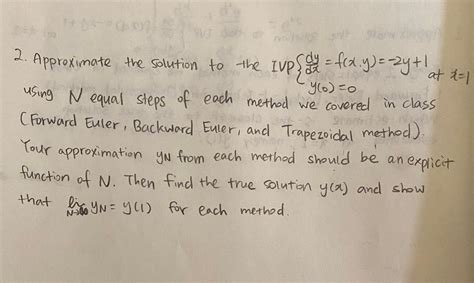 2. Approximate the solution to the IVP { dy/dx = f(x,y) = -2y+1
y(0)=0 at x=1
using N equal steps of each method we covered in class
(Forward Euler, Backward Euler, and Trapezoidal method).
Your approximation yN from each method should be an explicit
function of N. Then find the true solution y(x) and show
that lim N→∞ yN = y(1) for each method.